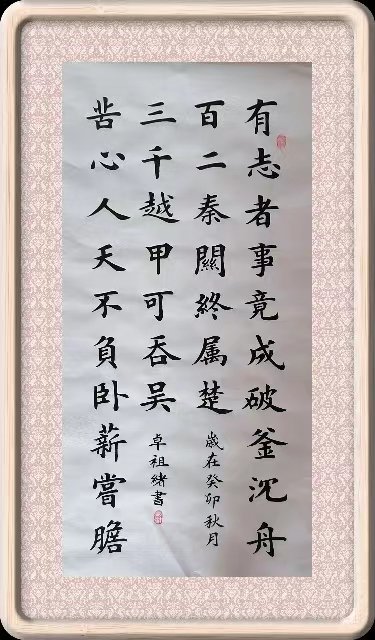 有志者事竟成破釜沉舟
百二秦關終属楚
歲在癸卯秋月
三千越甲可吞吴
卓祖緒書
苦心人天不負卧薪嘗膽